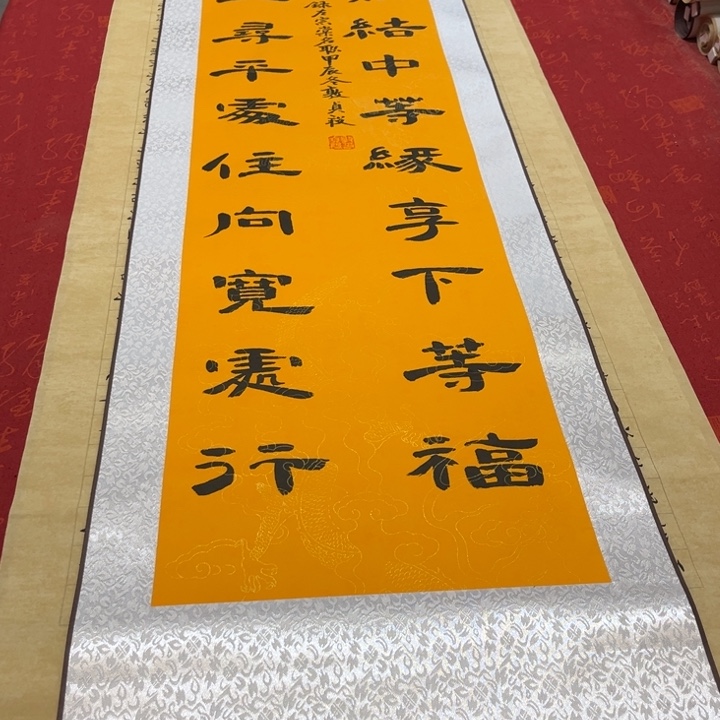 結中等緣享下等福
尋平處住向寬處行
錄左宗棠名聯甲辰冬